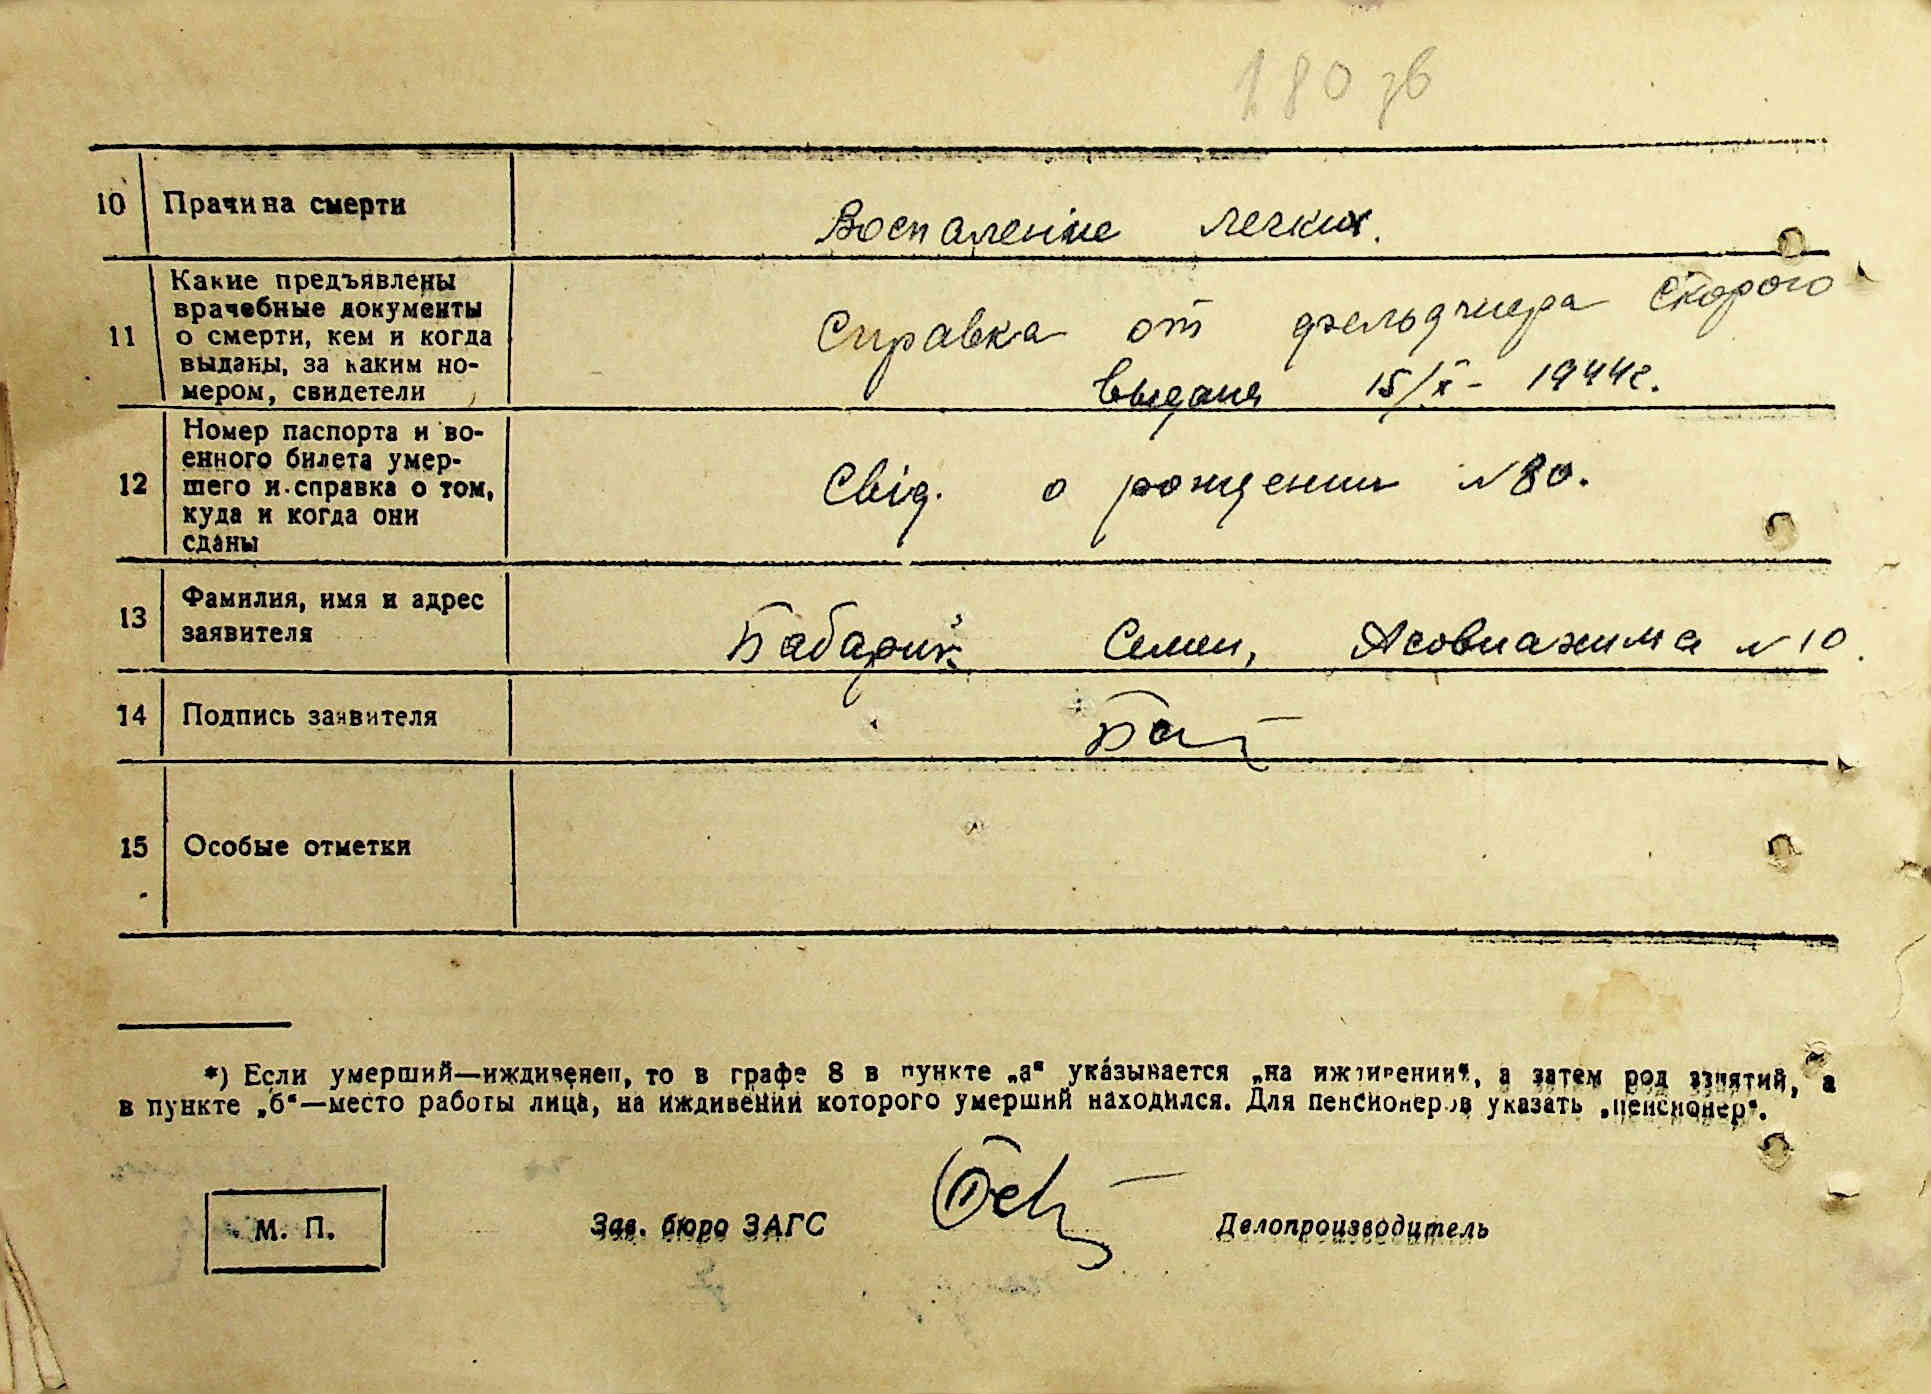 180 зв
10 Прачина смерти
Воспаление легких.
11 Какие предъявлены
врачебные документы
о смерти, кем и когда
выданы, за каким но-
мером, свидетели
Справка от фельдшера Скорого
выдана 15/X - 1944г.
12 Номер паспорта и во-
енного билета умер-
шего и справка о том,
куда и когда они
сданы
Свід. о рождении №80.
13 Фамилия, имя и адрес
заявителя
Бабарик Семен, Асовиахима №10.
14 Подпись заявителя
15 Особые отметки
*) Если умерший—иждивенец, то в графе 8 в пункте „а“ указывается „на иждивении“, а затем род занятий, а
в пункте „б“—место работы лица, на иждивении которого умерший находился. Для пенсионеров указать „пенсионер“.
М. П.
Зав. бюро ЗАГС
Делопроизводитель